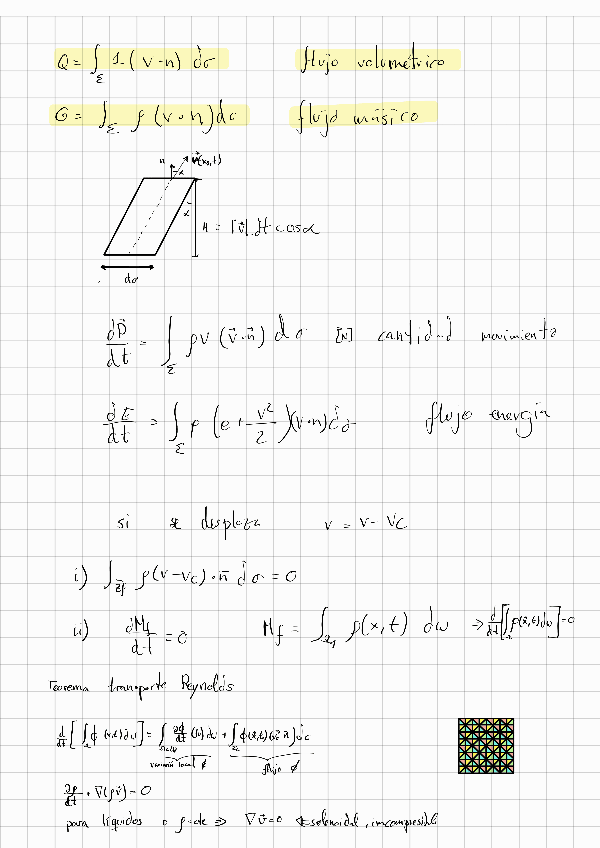 Q = ∫_Σ 1·(v·n) dσ flujo volumétrico
G = ∫_Σ ρ (v·n) dσ flujo másico
n v(x₀,t)
α
α
H = |v̄| dt cosα
dσ
dP̄/dt = ∫_Σ ρv (v̄·n̄) dσ [N] cantidad movimiento
dE/dt = ∫_Σ ρ (e + v²/2)(v·n) dσ flujo energía
si se desplaza v = v - vc
i) ∫_Σf ρ(v-vc)·n̄ dσ = 0
ii) dMf/dt = 0 Mf = ∫_Ωf ρ(x,t) dω ⇒ d/dt[∫ρ(x̄,t)dω] = 0
Teorema transporte Reynolds
d/dt [∫ϕ(x,t)dω] = ∫ ∂ϕ/∂t (x,t) dω + ∫ϕ(x̄,t)(v̄c·n̄)dσ
variación local ϕ flujo ϕ
∂ρ/∂t + ∇(ρv̄) = 0
para líquidos o ρ=cte ⇒ ∇v̄=0 ← solenoidal, incompresible